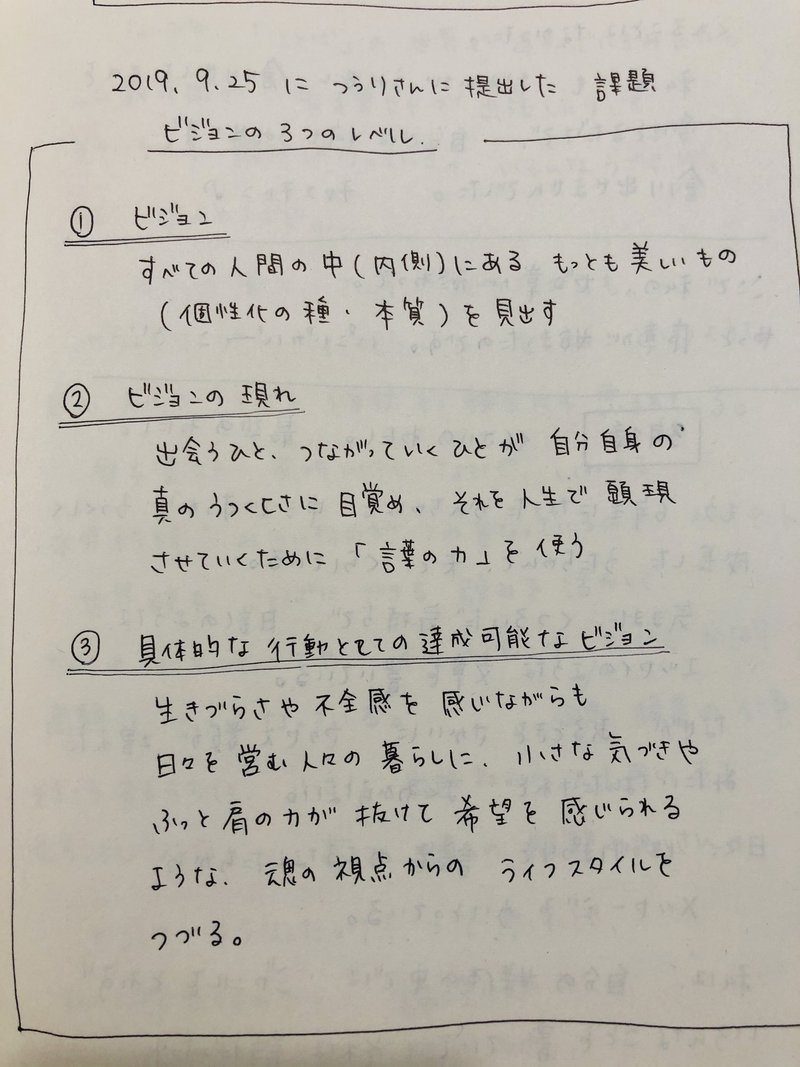 2019. 9. 25 に つうりさんに 提出した 課題
ビジョンの 3つの レベル.
① ビジョン
すべての 人間の 中(内側)にある もっとも 美しいもの
(個性化の種・本質)を 見出す
② ビジョンの 現れ
出会うひと、つながっていく ひとが 自分自身の
真の うつくしさに 目覚め、それを 人生で 顕現
させていくために 「言葉の力」を 使う
③ 具体的な 行動としての 達成可能な ビジョン
生きづらさや 不全感を 感じながらも
日々を 営む 人々の 暮らしに、小さな 気づきや
ふっと 肩の力が 抜けて 希望を 感じられる
ような、魂の 視点からの ライフスタイルを
つづる。